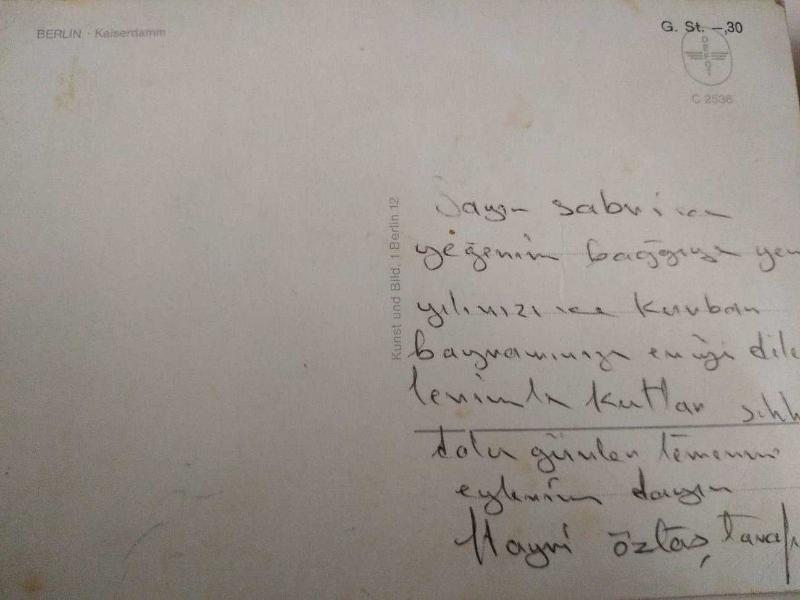 BERLIN · Kaiserdamm
G. St. –,30
DEFOT
C 2536
Kunst und Bild, 1 Berlin 12
Sayın sabri
yeğenim
yılınızı ve kurban
bayramınızı en iyi dile
lerimle kutlar sıhh
dolu günler temenni
eylerim dayın
Hayri öztaş,